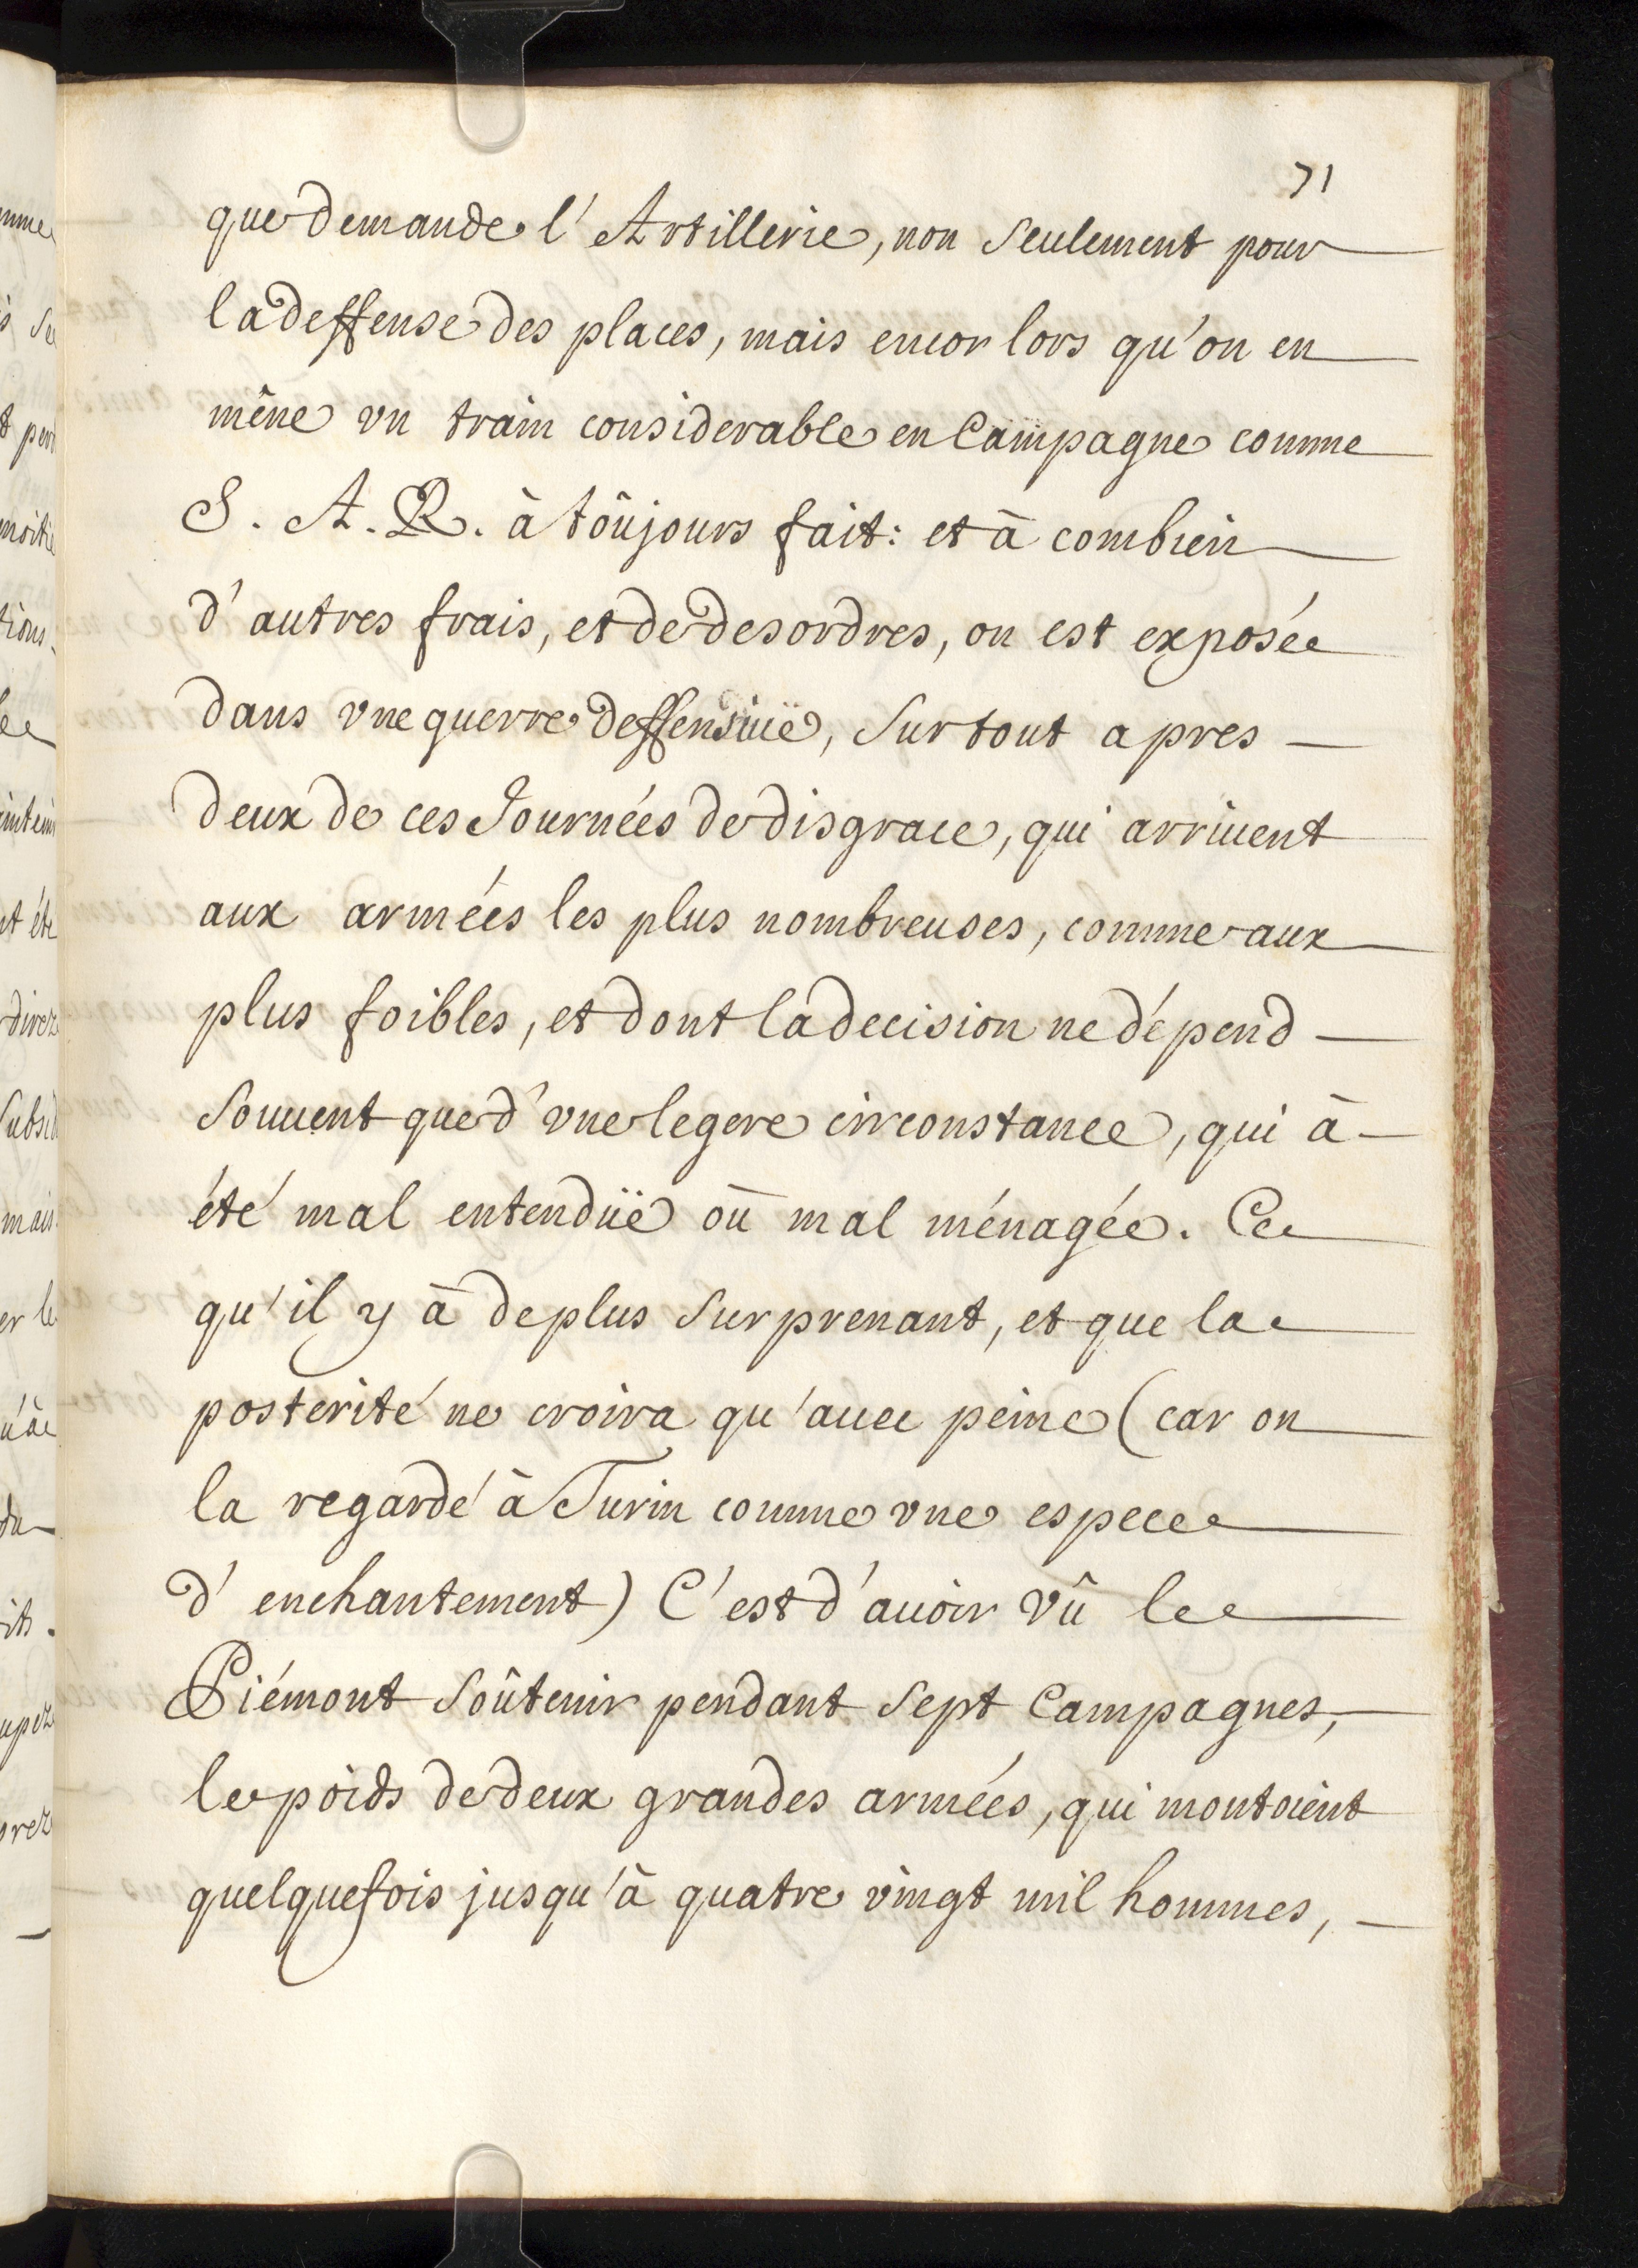 71
que demande l'Artillerie, non seulement pour
la deffense des places, mais encor lors qu'on en
mêne vn train considerable en Campagne comme
S. A. R. à tôujours fait: et à combien
d'autres frais, et de desordres, on est exposée
dans vne guerre deffensiuë, sur tout apres
deux de ces Journées de disgrace, qui arriuent
aux armées les plus nombreuses, comme aux
plus foibles, et dont la decision ne dépend
souuent que d'vne legere circonstance, qui à
été mal entenduë où mal ménagée. Ce
qu'il y à de plus surprenant, et que la
posterité ne croira qu'auec peine (car on
la regardé à Turin comme vne espece
d'enchantement) C'est d'auoir vû le
Piémont soûtenir pendant sept Campagnes,
le poids de deux grandes armées, qui montoient
quelquefois jusqu'à quatre vingt mil hommes,